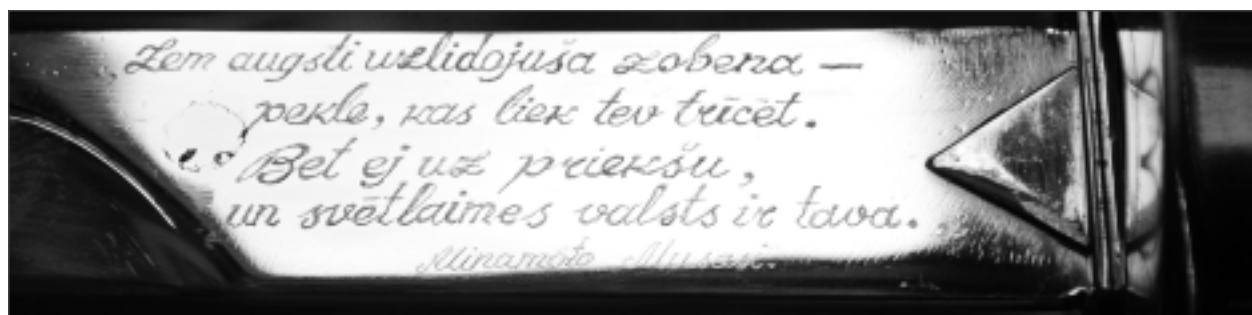 Zem augsti uzlidojuša zobena —
pekle, kas liek tev trīcēt.
Bet ej uz priekšu,
un svētlaimes valsts ir tava.
Minamoto Musasi.